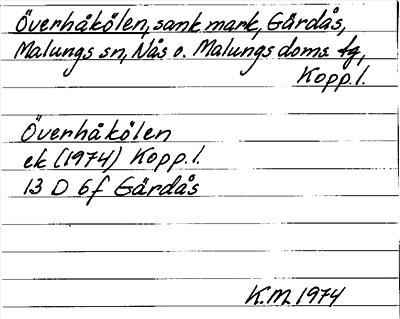 Överhåkölen, sank mark, Gärdås,
Malungs sn, Nås o. Malungs doms. tg,
Kopp. l.
Överhåkölen
ek (1974) Kopp. l.
13 D 6f Gärdås
K.M. 1974